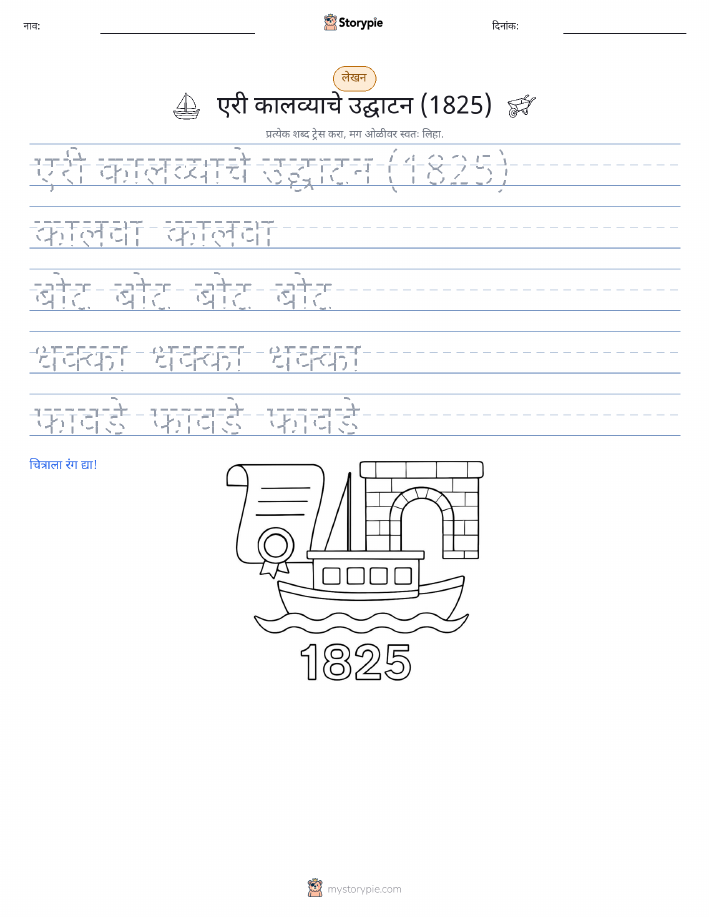 नाव:
Storypie
दिनांक:
लेखन
एरी कालव्याचे उद्घाटन (1825)
प्रत्येक शब्द ट्रेस करा, मग ओळीवर स्वतः लिहा.
एरी कालव्याचे उद्घाटन (1825)
कालवा कालवा
बोट बोट बोट बोट
धक्का धक्का धक्का
फावडे फावडे फावडे
चित्राला रंग द्या!
1825
mystorypie.com